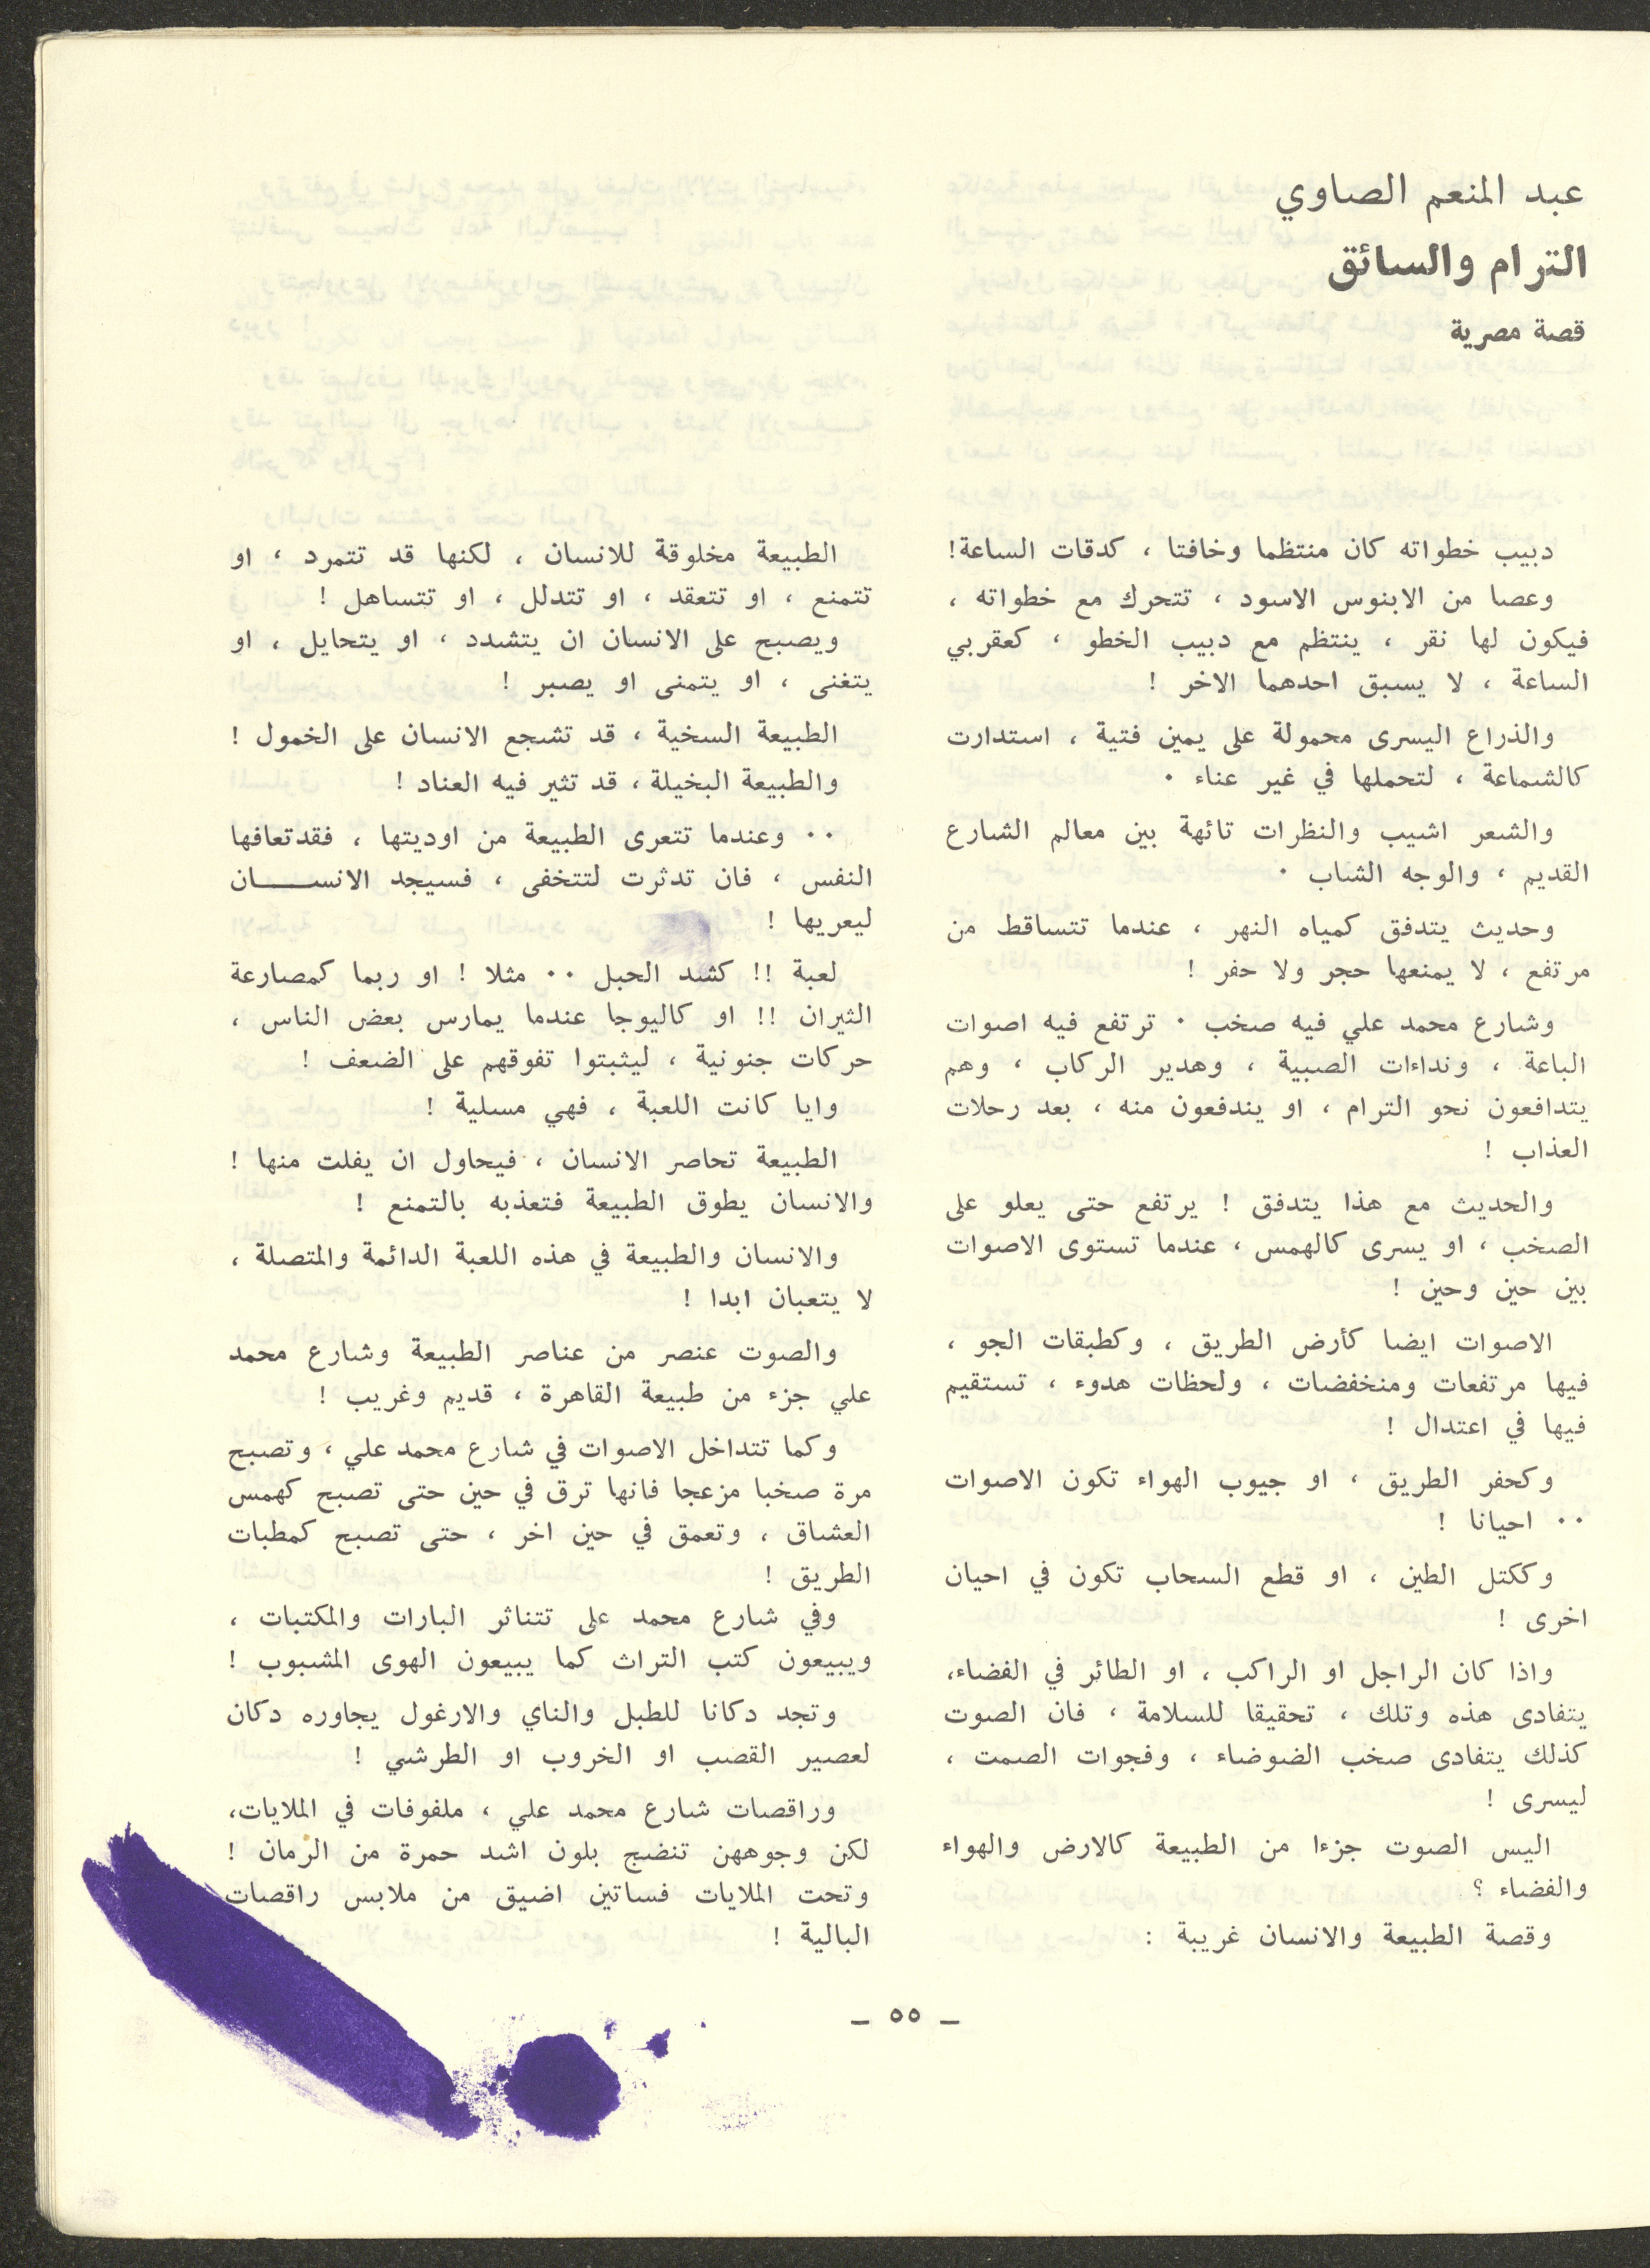 عبد المنعم الصاوي
الترام والسائق
قصة مصرية
دبيب خطواته كان منتظما وخافتا ، كدقات الساعة!
وعصا من الابنوس الاسود ، تتحرك مع خطواته ،
فيكون لها نقر ، ينتظم مع دبيب الخطو ، كعقربي
الساعة ، لا يسبق احدهما الاخر !
والذراع اليسرى محمولة على يمين فتية ، استدارت
كالشماعة ، لتحملها في غير عناء ٠
والشعر اشيب والنظرات تائهة بين معالم الشارع
القديم ، والوجه الشاب ٠
وحديث يتدفق كمياه النهر ، عندما تتساقط من
مرتفع ، لا يمنعها حجر ولا حفر !
وشارع محمد علي فيه صخب ٠ ترتفع فيه اصوات
الباعة ، ونداءات الصبية ، وهدير الركاب ، وهم
يتدافعون نحو الترام ، او يندفعون منه ، بعد رحلات
العذاب !
والحديث مع هذا يتدفق ! يرتفع حتى يعلو على
الصخب ، او يسرى كالهمس ، عندما تستوى الاصوات
بين حين وحين !
الاصوات ايضا كأرض الطريق ، وكطبقات الجو ،
فيها مرتفعات ومنخفضات ، ولحظات هدوء ، تستقيم
فيها في اعتدال !
وكحفر الطريق ، او جيوب الهواء تكون الاصوات
٠٠ احيانا !
وككتل الطين ، او قطع السحاب تكون في احيان
اخرى !
واذا كان الراجل او الراكب ، او الطائر في الفضاء،
يتفادى هذه وتلك ، تحقيقا للسلامة ، فان الصوت
كذلك يتفادى صخب الضوضاء ، وفجوات الصمت ،
ليسرى !
اليس الصوت جزءا من الطبيعة كالارض والهواء
والفضاء ؟
وقصة الطبيعة والانسان غريبة :
الطبيعة مخلوقة للانسان ، لكنها قد تتمرد ، او
تتمنع ، او تتعقد ، او تتدلل ، او تتساهل !
ويصبح على الانسان ان يتشدد ، او يتحايل ، او
يتغنى ، او يتمنى او يصبر !
الطبيعة السخية ، قد تشجع الانسان على الخمول !
والطبيعة البخيلة ، قد تثير فيه العناد !
٠٠ وعندما تتعرى الطبيعة من اوديتها ، فقدتعافها
النفس ، فان تدثرت لتتخفى ، فسيجد الانســــان
ليعريها !
لعبة !! كشد الحبل ٠٠ مثلا ! او ربما كمصارعة
الثيران !! او كاليوجا عندما يمارس بعض الناس ،
حركات جنونية ، ليثبتوا تفوقهم على الضعف !
وايا كانت اللعبة ، فهي مسلية !
الطبيعة تحاصر الانسان ، فيحاول ان يفلت منها !
والانسان يطوق الطبيعة فتعذبه بالتمنع !
والانسان والطبيعة في هذه اللعبة الدائمة والمتصلة ،
لا يتعبان ابدا !
والصوت عنصر من عناصر الطبيعة وشارع محمد
علي جزء من طبيعة القاهرة ، قديم وغريب !
وكما تتداخل الاصوات في شارع محمد علي ، وتصبح
مرة صخبا مزعجا فانها ترق في حين حتى تصبح كهمس
العشاق ، وتعمق في حين اخر ، حتى تصبح كمطبات
الطريق !
وفي شارع محمد على تتناثر البارات والمكتبات ،
ويبيعون كتب التراث كما يبيعون الهوى المشبوب !
وتجد دكانا للطبل والناي والارغول يجاوره دكان
لعصير القصب او الخروب او الطرشي !
وراقصات شارع محمد علي ، ملفوفات في الملايات،
لكن وجوههن تنضح بلون اشد حمرة من الرمان !
وتحت الملايات فساتين اضيق من ملابس راقصات
البالية !
ــ ٥٥ ــ